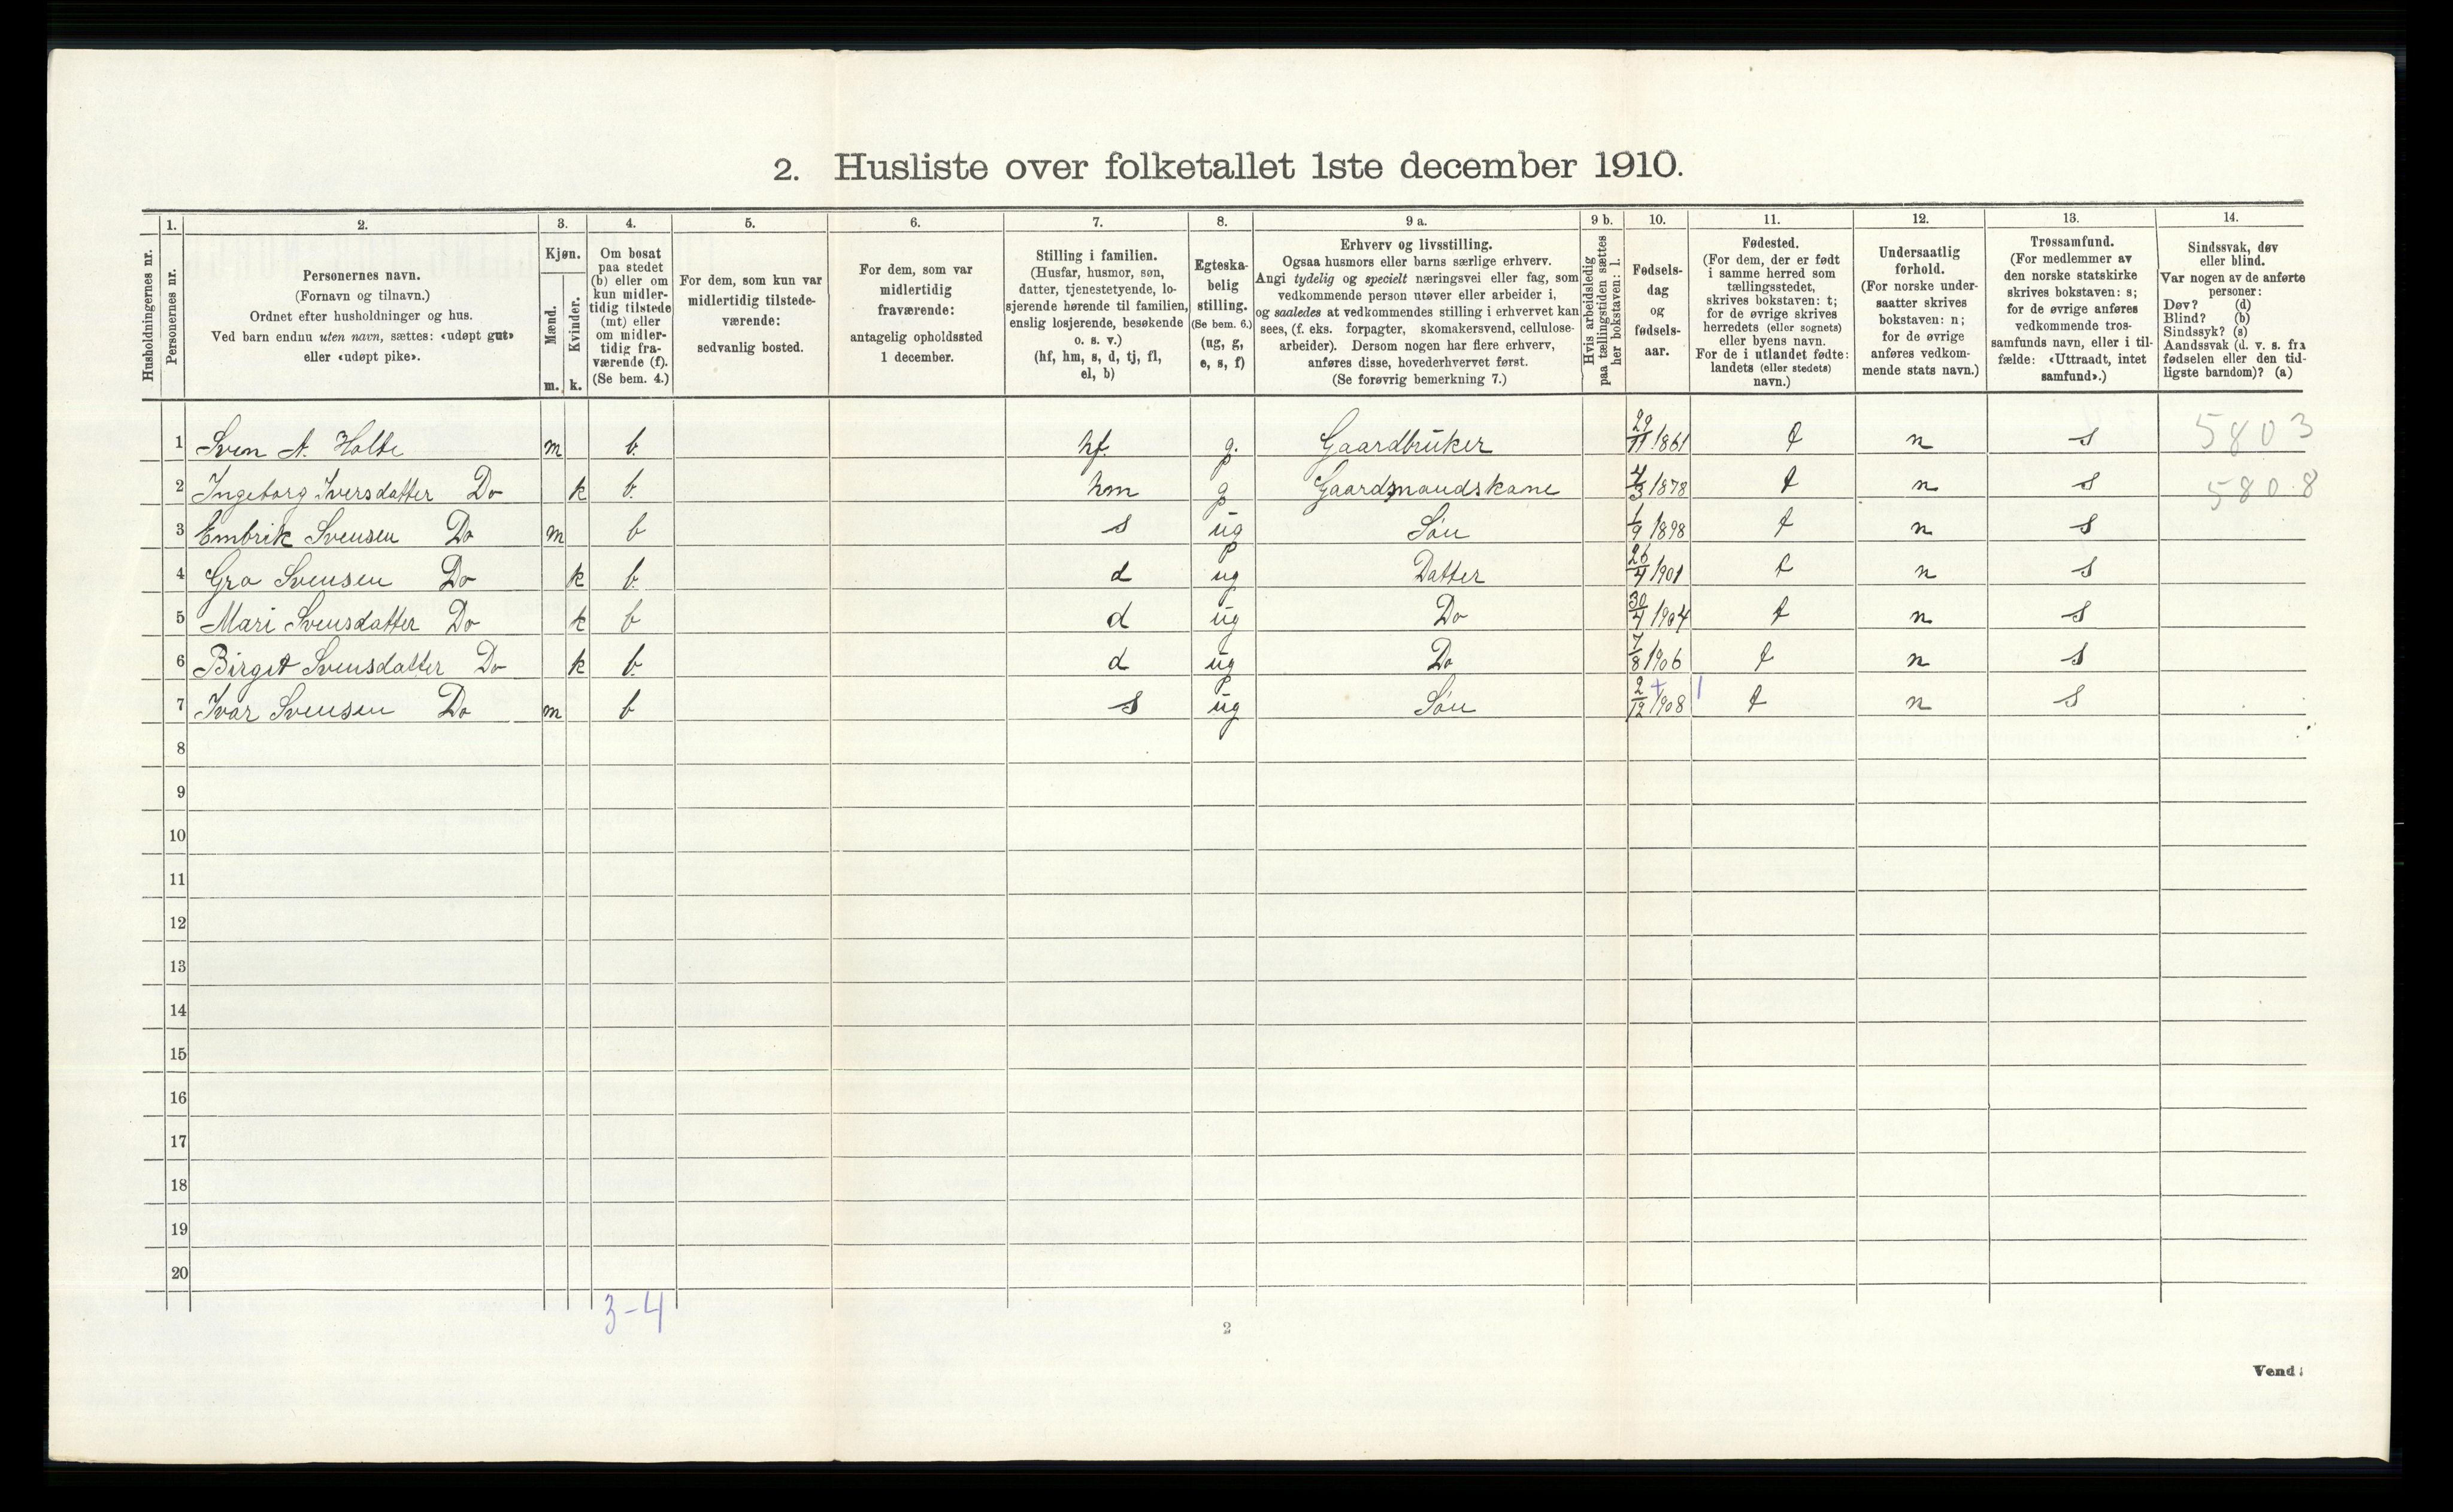 2. Husliste over folketallet 1ste december 1910.
Husholdningernes nr.
1.
Personernes nr.
2.
Personernes navn.
(Fornavn og tilnavn.)
Ordnet efter husholdninger og hus.
Ved barn endnu uten navn, sættes: «udøpt gut»
eller «udøpt pike».
3.
Kjøn.
Mænd.
m.
Kvinder.
k.
4.
Om bosat
paa stedet
(b) eller om
kun midler-
tidig tilstede
(mt) eller
om midler-
tidig fra-
værende (f).
(Se bem. 4.)
5.
For dem, som kun var
midlertidig tilstede-
værende:
sedvanlig bosted.
6.
For dem, som var
midlertidig
fraværende:
antagelig opholdssted
1 december.
7.
Stilling i familien.
(Husfar, husmor, søn,
datter, tjenestetyende, lo-
sjerende hørende til familien,
enslig losjerende, besøkende
o. s. v.)
(hf, hm, s, d, tj, fl,
el, b)
8.
Egteska-
belig
stilling.
(Se bem. 6.)
(ug, g,
e, s, f)
9 a.
Erhverv og livsstilling.
Ogsaa husmors eller barns særlige erhverv.
Angi tydelig og specielt næringsvei eller fag, som
vedkommende person utøver eller arbeider i,
og saaledes at vedkommendes stilling i erhvervet kan
sees, (f. eks. forpagter, skomakersvend, cellulose-
arbeider). Dersom nogen har flere erhverv,
anføres disse, hovederhvervet først.
(Se forøvrig bemerkning 7.)
9 b.
Hvis arbeidsledig
paa tællingstiden sættes
her bokstaven: l.
10.
Fødsels-
dag
og
fødsels-
aar.
11.
Fødested.
(For dem, der er født
i samme herred som
tællingsstedet,
skrives bokstaven: t;
for de øvrige skrives
herredets (eller sognets)
eller byens navn.
For de i utlandet fødte:
landets (eller stedets)
navn.)
12.
Undersaatlig
forhold.
(For norske under-
saatter skrives
bokstaven: n;
for de øvrige
anføres vedkom-
mende stats navn.)
13.
Trossamfund.
(For medlemmer av
den norske statskirke
skrives bokstaven: s;
for de øvrige anføres
vedkommende tros-
samfunds navn, eller i til-
fælde: «Uttraadt, intet
samfund».)
14.
Sindssvak, døv
eller blind.
Var nogen av de anførte
personer:
Døv? (d)
Blind? (b)
Sindssyk? (s)
Aandssvak (d. v. s. fra
fødselen eller den tid-
ligste barndom)? (a)
1 Sven A. Holte m b. hf. g. Gaardbruker 29/11 1861 t n s 5803
2 Ingeborg Iversdatter Do k b. hm g Gaardmandskone 4/3 1878 t n s 5808
3 Embrik Svensen Do m b s ug Søn 1/9 1898 t n s
4 Gro Svensen Do k b. d ug Datter 26/4 1901 t n s
5 Mari Svensdatter Do k b d ug Do 30/4 1904 t n s
6 Birgit Svensdatter Do k b. d ug Do 7/8 1906 t n s
7 Ivar Svensen Do m b s ug Søn 2/12 1908 + | t n s
8
9
10
11
12
13
14
15
16
17
18
19
20
3-4
2
Vend!